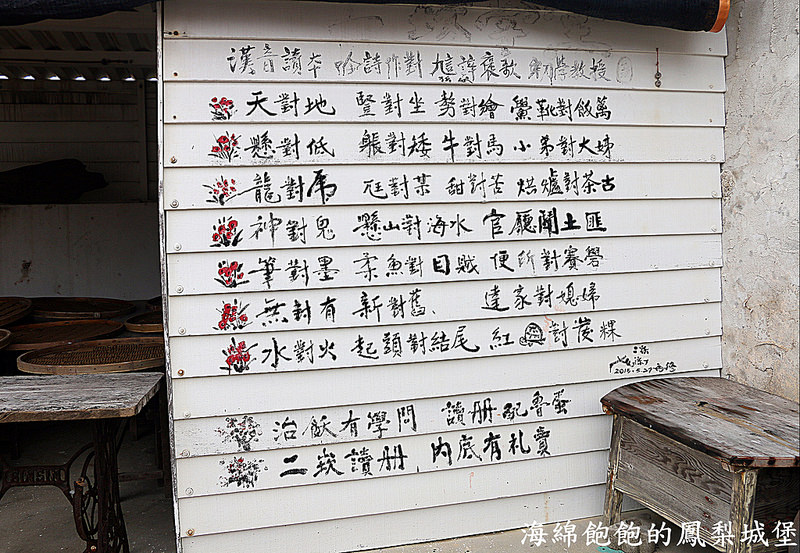 漢音讀本 唸詩作對 教授
天對地 豎對坐 勢對繪 靴對飯萬
懸對低 躼對矮 牛對馬 小弟對大姊
龍對虎 尫對某 甜對苦 烘爐對茶古
神對鬼 懸山對海水 官廳鬧土匪
筆對墨 柔魚對目賊 便所對賽礐
無對有 新對舊、 達家對媳婦
水對火 起頭對結尾 紅 對 粿
2015.5.27
治穌有學問 讀冊配魯蛋
二崁讀冊、內底有礼賣
海綿飽飽的鳳梨城堡